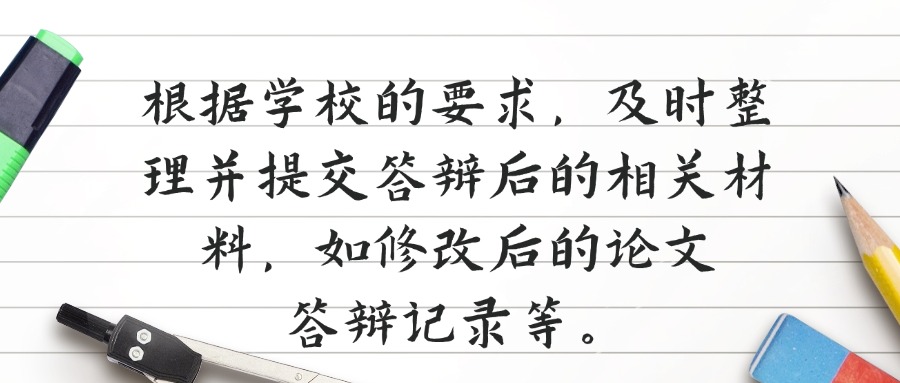 根据学校的要求，及时整
理并提交答辩后的相关材
料，如修改后的论文
答辩记录等。